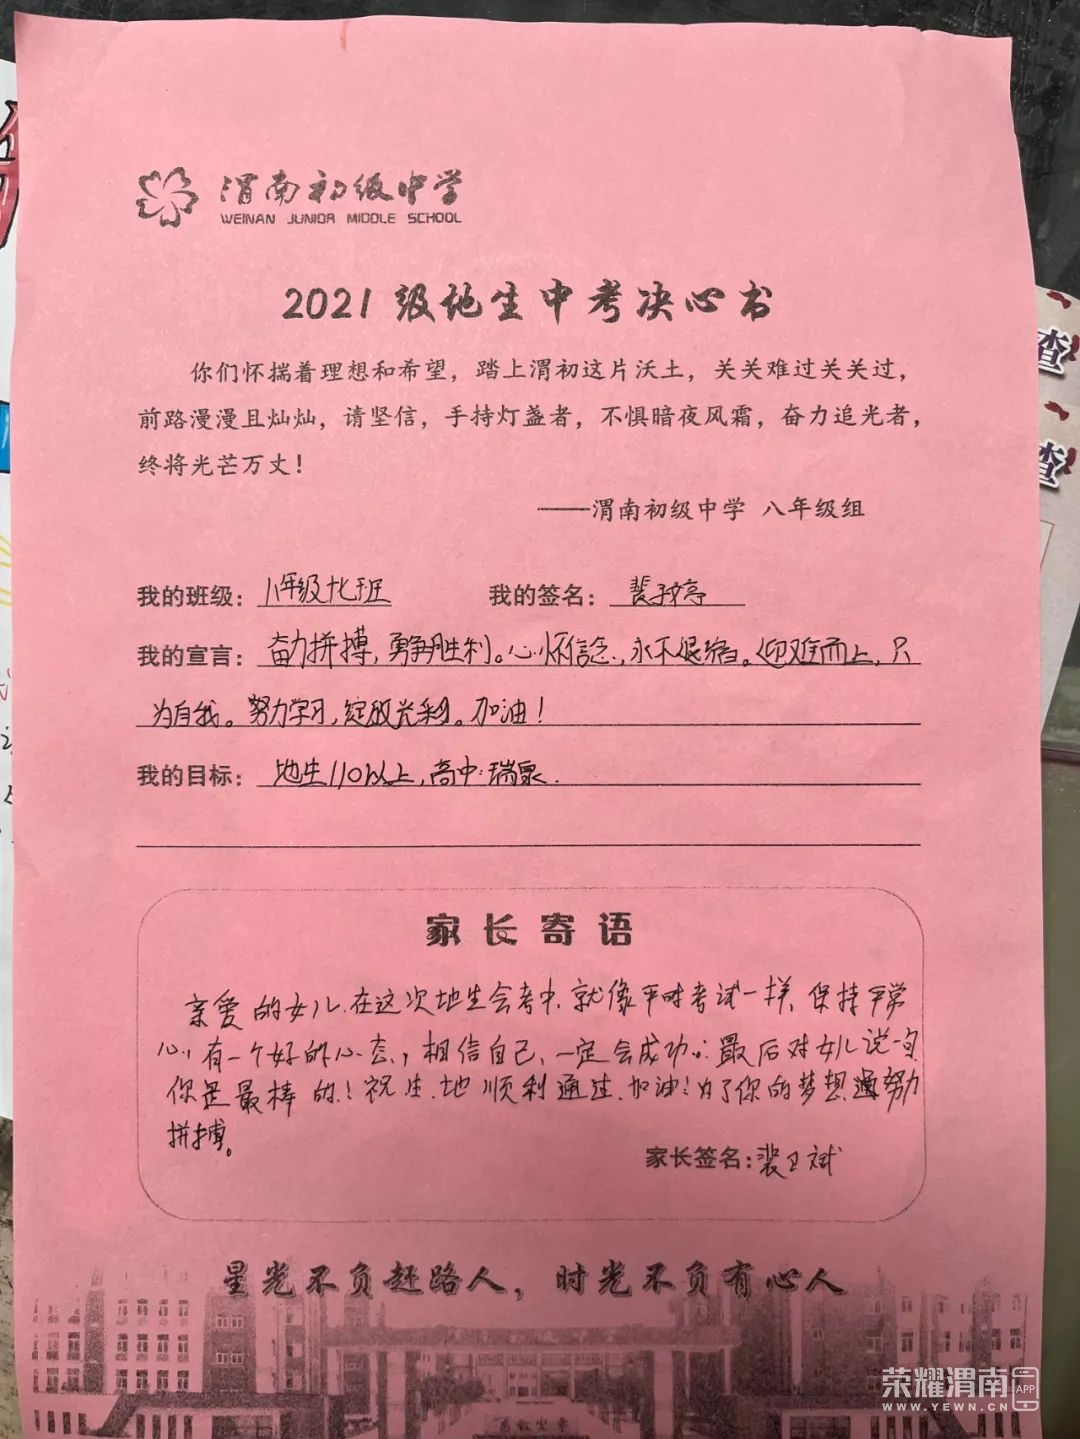 渭南初级中学
WEINAN JUNIOR MIDDLE SCHOOL
2021级地生中考决心书
你们怀揣着理想和希望，踏上渭初这片沃土，关关难过关关过，
前路漫漫且灿灿，请坚信，手持灯盏者，不惧暗夜风霜，奋力追光者，
终将光芒万丈！
——渭南初级中学 八年级组
我的班级：八年级十七班 我的签名：裴子婷
我的宣言：奋力拼搏，勇争胜利。心怀信念，永不退缩。迎难而上，只
为自我。努力学习，绽放光彩。加油！
我的目标：地生110以上，高中：瑞泉.
家长寄语
亲爱的女儿.在这次地生会考中.就像平时考试一样、保持平常
心，有一个好的心态，相信自己、一定会成功；最后对女儿说一句
你是最棒的！祝生.地顺利通过.加油！为了你的梦想 努力
拼搏。
家长签名：裴卫斌
星光不负赶路人，时光不负有心人
查
查
荣耀渭南 APP
WWW.YEWN.CN